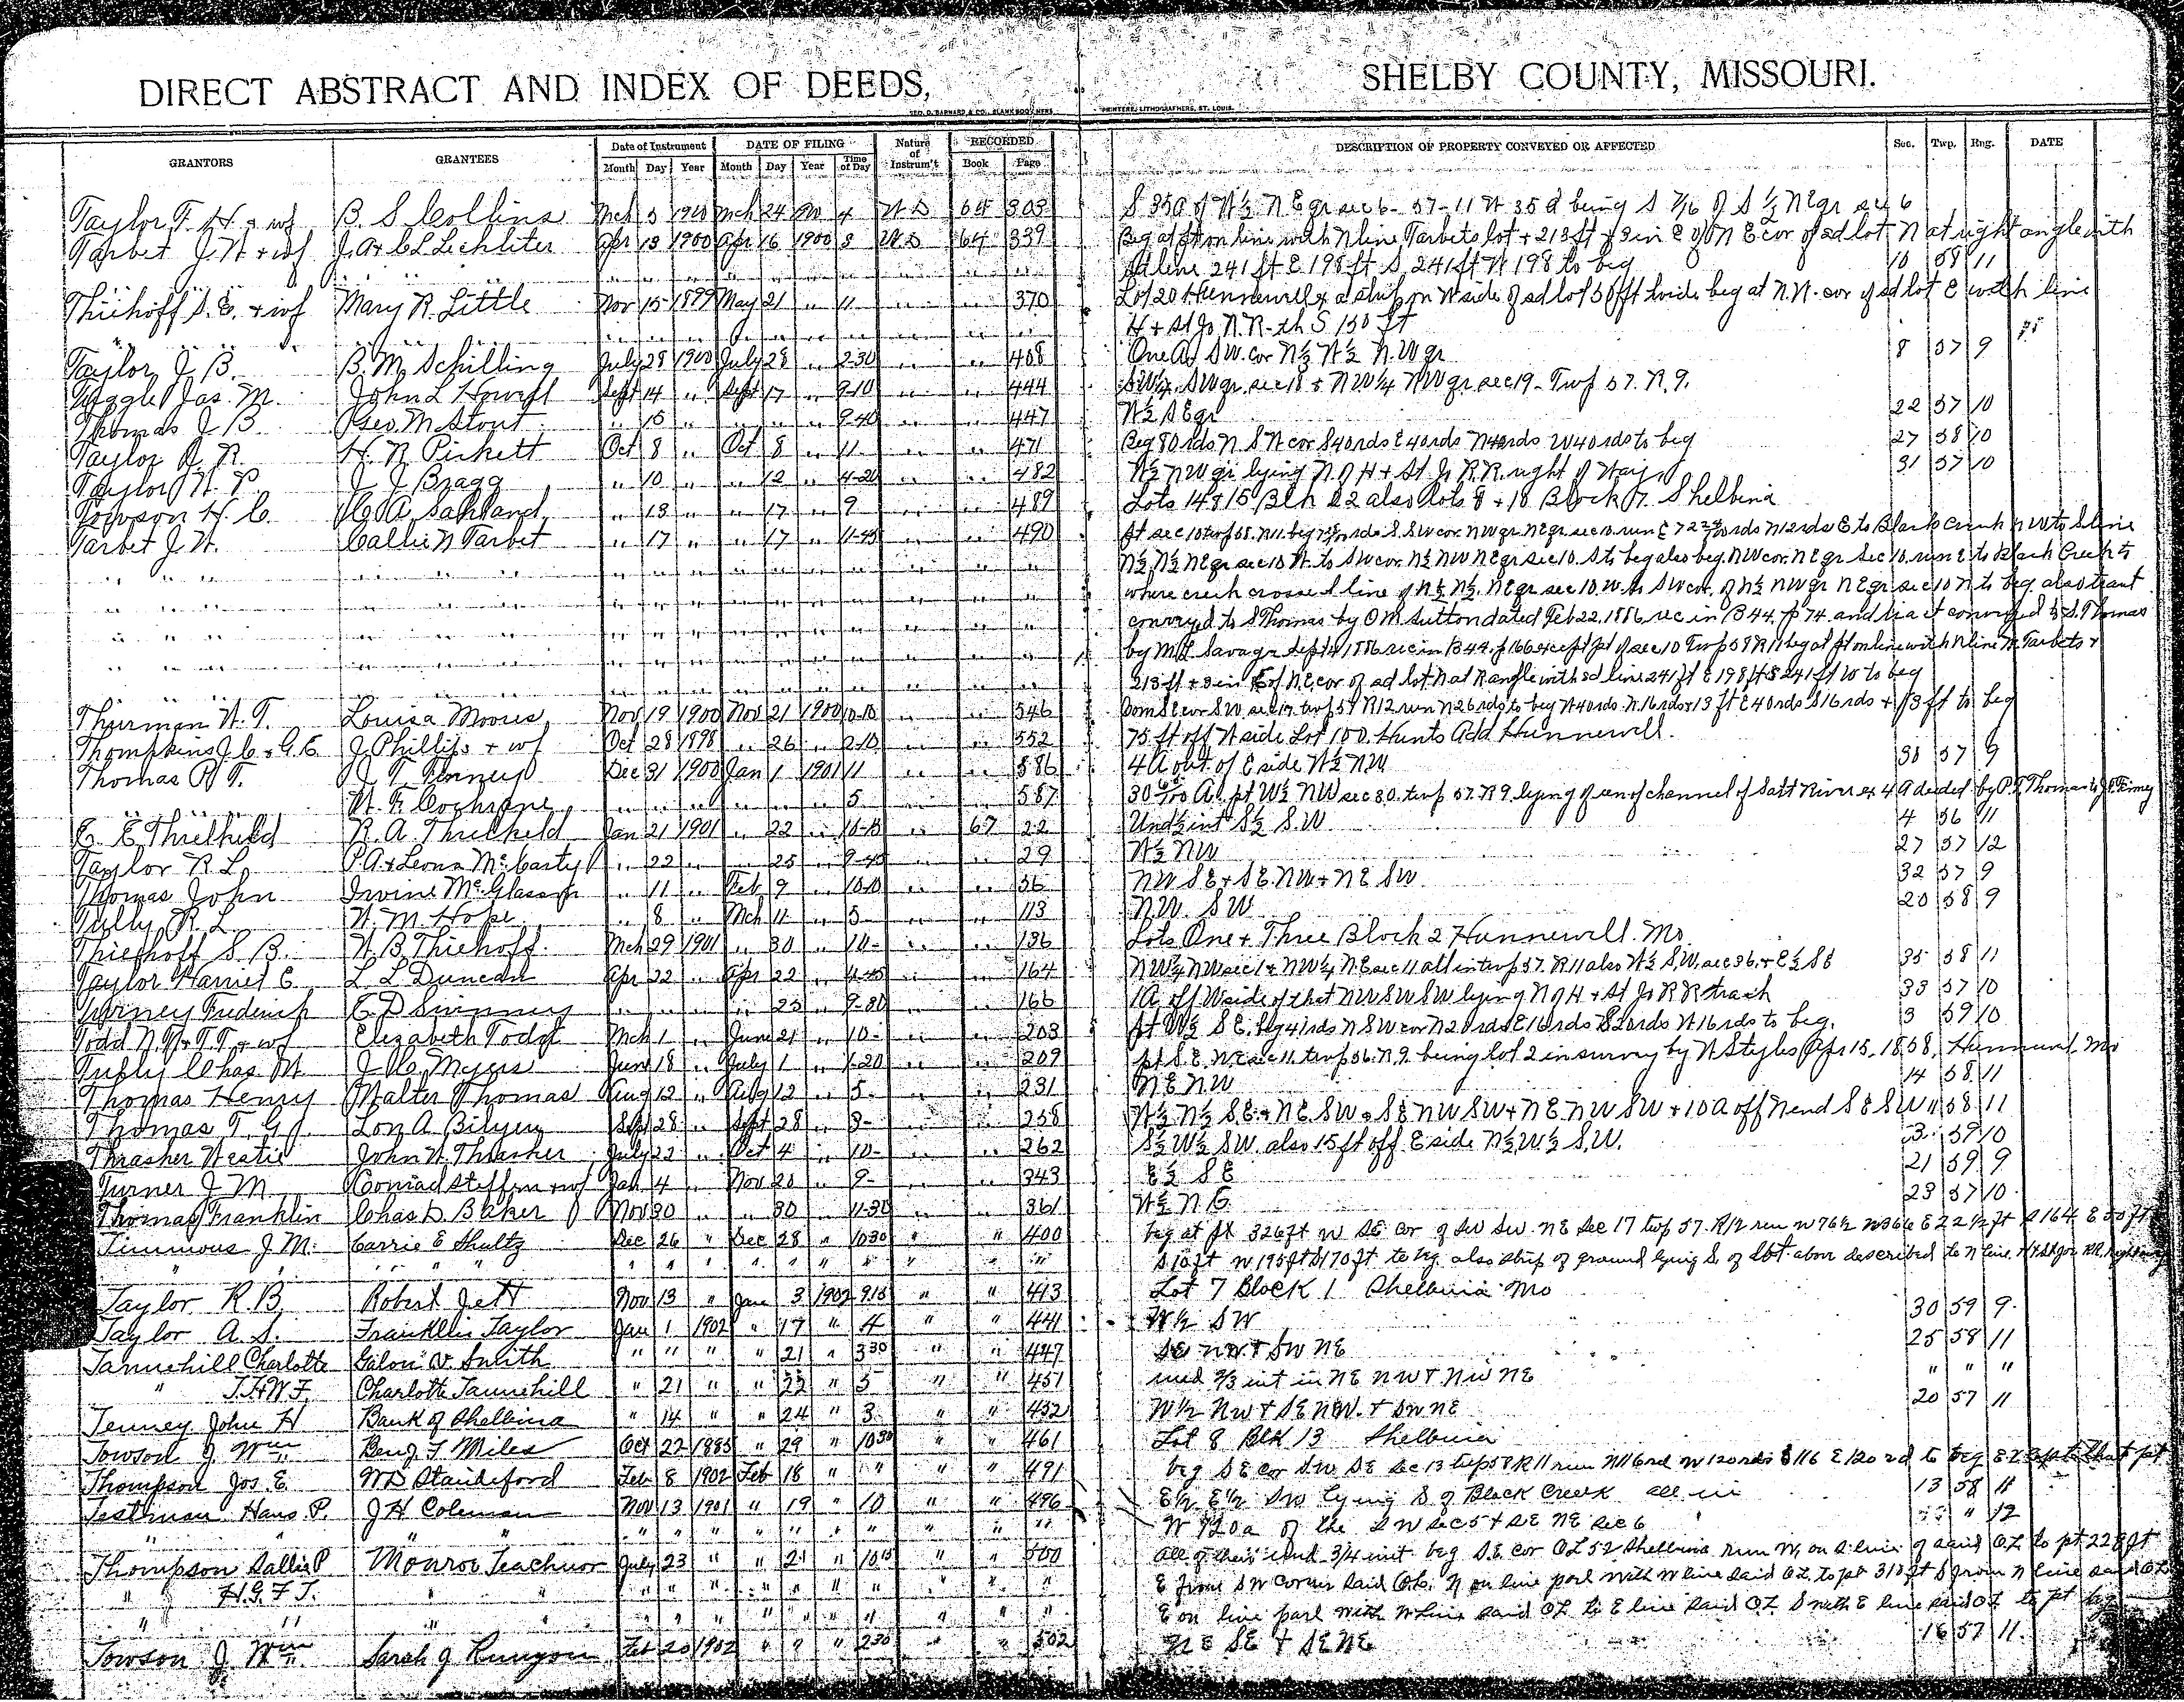 DIRECT ABSTRACT AND INDEX OF DEEDS, SHELBY COUNTY, MISSOURI.
GEO. D. BARNARD & CO., BLANK BOOK MFRS PRINTERS, LITHOGRAPHERS, ST. LOUIS.
GRANTORS GRANTEES Date of Instrument DATE OF FILING Nature of Instrum't RECORDED DESCRIPTION OF PROPERTY CONVEYED OR AFFECTED Sec. Twp. Rng. DATE
Month Day Year Month Day Year Time of Day Book Page
Taylor F. H. & wf B. S. Collins Mch 5 1900 Mch 24 4 W D 64 303 S 35a of W½ N E qr sec 6 - 57 - 11 being S 7/16 of S ½ N E qr sec 6
Tarbet J. W. & wf J. A & C L Lechliter Apr 13 1900 Apr 16 1900 3 W D 64 339 Beg at pt on line with N line Tarbets lot & 213 ft & 3 in E of N E cor of sd lot N at right angle with
" " " " " " " " " " " " sd line 241 ft E 198 ft S 241 ft W 198 to beg 10 58 11
Thiehoff S. E. & wf Mary R. Little Nov 15 1899 May 21 " 11 " " 370 Lot 20 Hunnewell & a strip on W side of sd lot 50 ft wide beg at N.W. cor of sd lot E with line
" " " " " " " " " " H & St Jo R.R. th S 150 ft
Taylor, J. B. B. M. Schilling July 28 1900 July 28 " 2-30 " " 408 One A. SW. cor N½ W½ N.W qr 8 57 9
Tuggle Jas. M. John L Howell Sept 14 " Sept 17 " 9-10 " " 444 SW¼ SW qr. sec 18 & NW¼ NW qr. sec 19 - Twp 57. R 9.
Thomas J B Geo. M Stout " 15 " " " 9-40 " " 447 W½ S E qr 22 57 10
Taylor R. H. R. Pickett Oct 8 " Oct 8 " 11 " " 471 Beg 80 rds N S W cor S 40 rds E 40 rds N 40 rds W 40 rds to beg 27 58 10
Taylor W. P J J Bragg " 10 " " 12 " 4-20 " " 482 W½ NW qr lying N of H & St Jo R.R. right of Way 31 57 10
Towson H C " 13 " " 17 " 9 " " 489 Lots 14 & 15 Blk 22 also Lots 8 & 18 Block 7. Shelbina
Tarbet J. W. Callie N Tarbet " 17 " " 17 " 11-45 " " 490 pt sec 10 twp 58. R 11. beg rds S. SW cor. NW qr. NE qr. sec 10. run E rds N 12 rds E to Black Creek NW to S line
" " " " " " " " " " N½ N½ NE qr sec 10 W. to SW cor. N½ NW NE qr sec 10. S to beg also beg. NW cor. NE qr Sec 10. run E to Black Creek to
" " " " " " " " " " where creek crosses S line of N½ N½ NE qr sec 10. W. to SW cor. of N½ NW qr NE qr sec 10 N to beg also tract
" " " " " " " " " " conveyed to S Thomas by O M Sutton dated Feb 22. 1886 rec in B 44. p 74 and tract conveyed to S. Thomas
" " " " " " " " " " by M L Savage Sept 4 1886 rec in B 44. p 166 except pt of sec 10 Twp 58 R 11 beg at pt on line with N line W. Tarbets &
" " " " " " " " " " 213 ft & 3 in E of N.E. cor of sd lot N at R angle with sd line 241 ft E 198 ft S 241 ft W to beg
Thurman W. T. Louisa Moore Nov 19 1900 Nov 21 1900 10-10 " " 546 Com SE cor SW sec 17 twp 57 R 12 run N 26 rds to beg W 40 rds. N 16 rds & 13 ft E 40 rds S 16 rds & 13 ft to beg
Thompkins J. C. & G. E. J Phillips & wf Oct 28 1898 " 26 " 2-10 " " 552 75 ft off W side Lot 100. Hunts Add Hunnewell.
Thomas P. T. J. T. Finney Dec 31 1900 Jan 1 1901 11 " " 586 4 A out of E side W½ NW 30 57 9
" " " W. F. Cochrane " " " " " " 5 " " 587 30 A. pt W½ NW sec 30. twp 57. R 9. lying of channel of Salt River ex 4 A deeded by P. T. Thomas to J. T. Finney
E. E Threlkeld R. A. Threlkeld Jan 21 1901 " 22 " " 67 22 Und ½ int S½ S.W 4 56 11
Taylor R. L. P. A. & Leona McCarty " 22 " " 25 " 9-45 " " 29 W½ NW 27 57 12
Thomas John Irvine McGlasson " 11 " Feb 9 " 10-10 " " 56 NW SE & SE. NW & NE SW 32 57 9
Tully R. L. W. M. Hope " 8 " Mch 11 " 5 " " 113 NW. SW 20 58 9
Thiehoff S. B. W. B. Thiehoff Mch 29 1901 " 30 " " " 136 Lots One & Three Block 2 Hunnewell. Mo
Taylor Harriet E. L. L Duncan Apr 22 " Apr 22 " 4-45 " " 164 NW¼ NW sec 1 & NW¼ NE sec 11 all in twp 57. R 11 also W½ S.W. sec 36. & E½ SE 35 58 11
Frederick E. D " " " " 25 " 9-30 " " 166 1A off W side of that NW SW SW lying N of H & St Jo R R track 33 57 10
Todd N. & T. T. & wf Elizabeth Todd Mch 1 " June 21 " 10 " " 203 pt W½ SE. beg 41 rds N SW cor N 20 rds E 16 rds S 20 rds W 16 rds to beg. 3 59 10
Chas W J. C. Myers June 18 " July 1 " 1-20 " " 209 pt S.E. NE sec 11. twp 56. R 9. being lot 2 in survey by W Styles Apr 15, 1858, Hunnewell Mo
Thomas Henry Walter Thomas Aug 12 " Aug 12 " 5 " " 231 N E NW 14 58 11
Thomas T. G. Lon A Bilyeu Sept 28 " Sept 28 " " " 258 W½ N½ SE. & NE SW & SE NW SW & NE. NW SW & 10 A off N end SE SW 11 58 11
Thrasher Westie John W Thrasher July 22 " Oct 4 " 10 " " 262 S½ W½ SW. also 15 ft off E side N½ W½ S.W. 3 59 10
Turner J M Conrad Steffen & wf 4 " Nov 20 " 9 " " 343 E½ S E 21 59 9
Thomas Franklin Chas D. Baker Nov 30 " " 30 " 11-30 " " 361 W½ N E 23 57 10
Timmons J. M. Carrie E Shultz Dec 26 " Dec 28 " 1030 " " 400 beg at pt 326 ft W SE cor of SW SW. NE Sec 17 twp 57. R 12 run W 76½ N 366 E 22½ ft S 164 E 50 ft
" " " " " " " " " " S 10 ft W 195 ft S 170 ft to beg. also strip of ground lying S. of Lot above described to N line H & St Jo RR. Right way
Taylor R. B. Robert Jett Nov 13 " Jan 3 1902 915 " " 413 Lot 7 Block 1 Shelbina Mo
Taylor A. S. Franklin Taylor Jan 1 1902 " 17 " 4 " " 441 W½ SW 30 59 9
Tannehill Charlotte Galon V. Smith " " " " 21 " 330 " " 447 SE NW & SW NE 25 58 11
" T. H W F. Charlotte Tannehill " 21 " " 22 " 5 " " 451 und ⅔ int in NE NW & NW NE " " "
Tenney John H Bank of Shelbina " 14 " " 24 " 3 " " 452 W½ NW & SE NW. & SW NE 20 57 11
Towson J Wm Benj F Miles Oct 22 1885 " 29 " 1030 " " 461 Lot 8 Blk 13 Shelbina
Thompson Jos. E. W D Standeford Feb 8 1902 Feb 18 " " " " 491 beg SE cor SW SE Sec 13 twp 58 R 11 run N 116 rd W 120 rds S 116 E 120 rd to beg Except that pt
Testman Hans P. J H Coleman Nov 13 1901 " 19 " 10 " " 496 E½ E½ SW lying S of Black Creek all in 13 58 11
" " " " " " " " " " W 120 a of the SW Sec 5 & SE NE Sec 6 " 12
Thompson Sallie P Monroe Teachnor July 23 " " 21 " 1015 " " 500 all of their und 3/4 int beg S.E. cor OL 52 Shelbina run W, on S line of said OL to pt 228 ft
" H. G. F J. " " " " " " " " " " E from SW corner said OL. N on line parl with W line said OL. to pt 310 ft S from N line said OL
" " " " " " " " " " E on line parl with N line said OL to E line said OL S with E line said OL to pt beg
Towson J Wm Sarah J Runyon Feb 20 1902 " " " 230 " " 502 NE SE & SE NE 16 57 11.